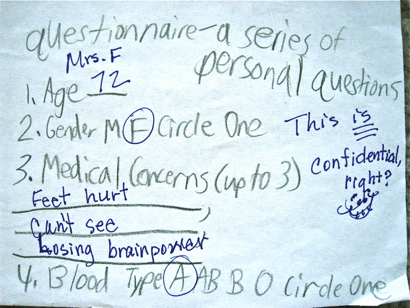 questionnaire-a series of
personal questions
Mrs. F
1. Age 72
2. Gender M F Circle One
3. Medical Concerns (up to 3)
Feet hurt,
Can't see
Losing brainpower
4. Blood Type A AB B O Circle One
This is
Confidential,
right?